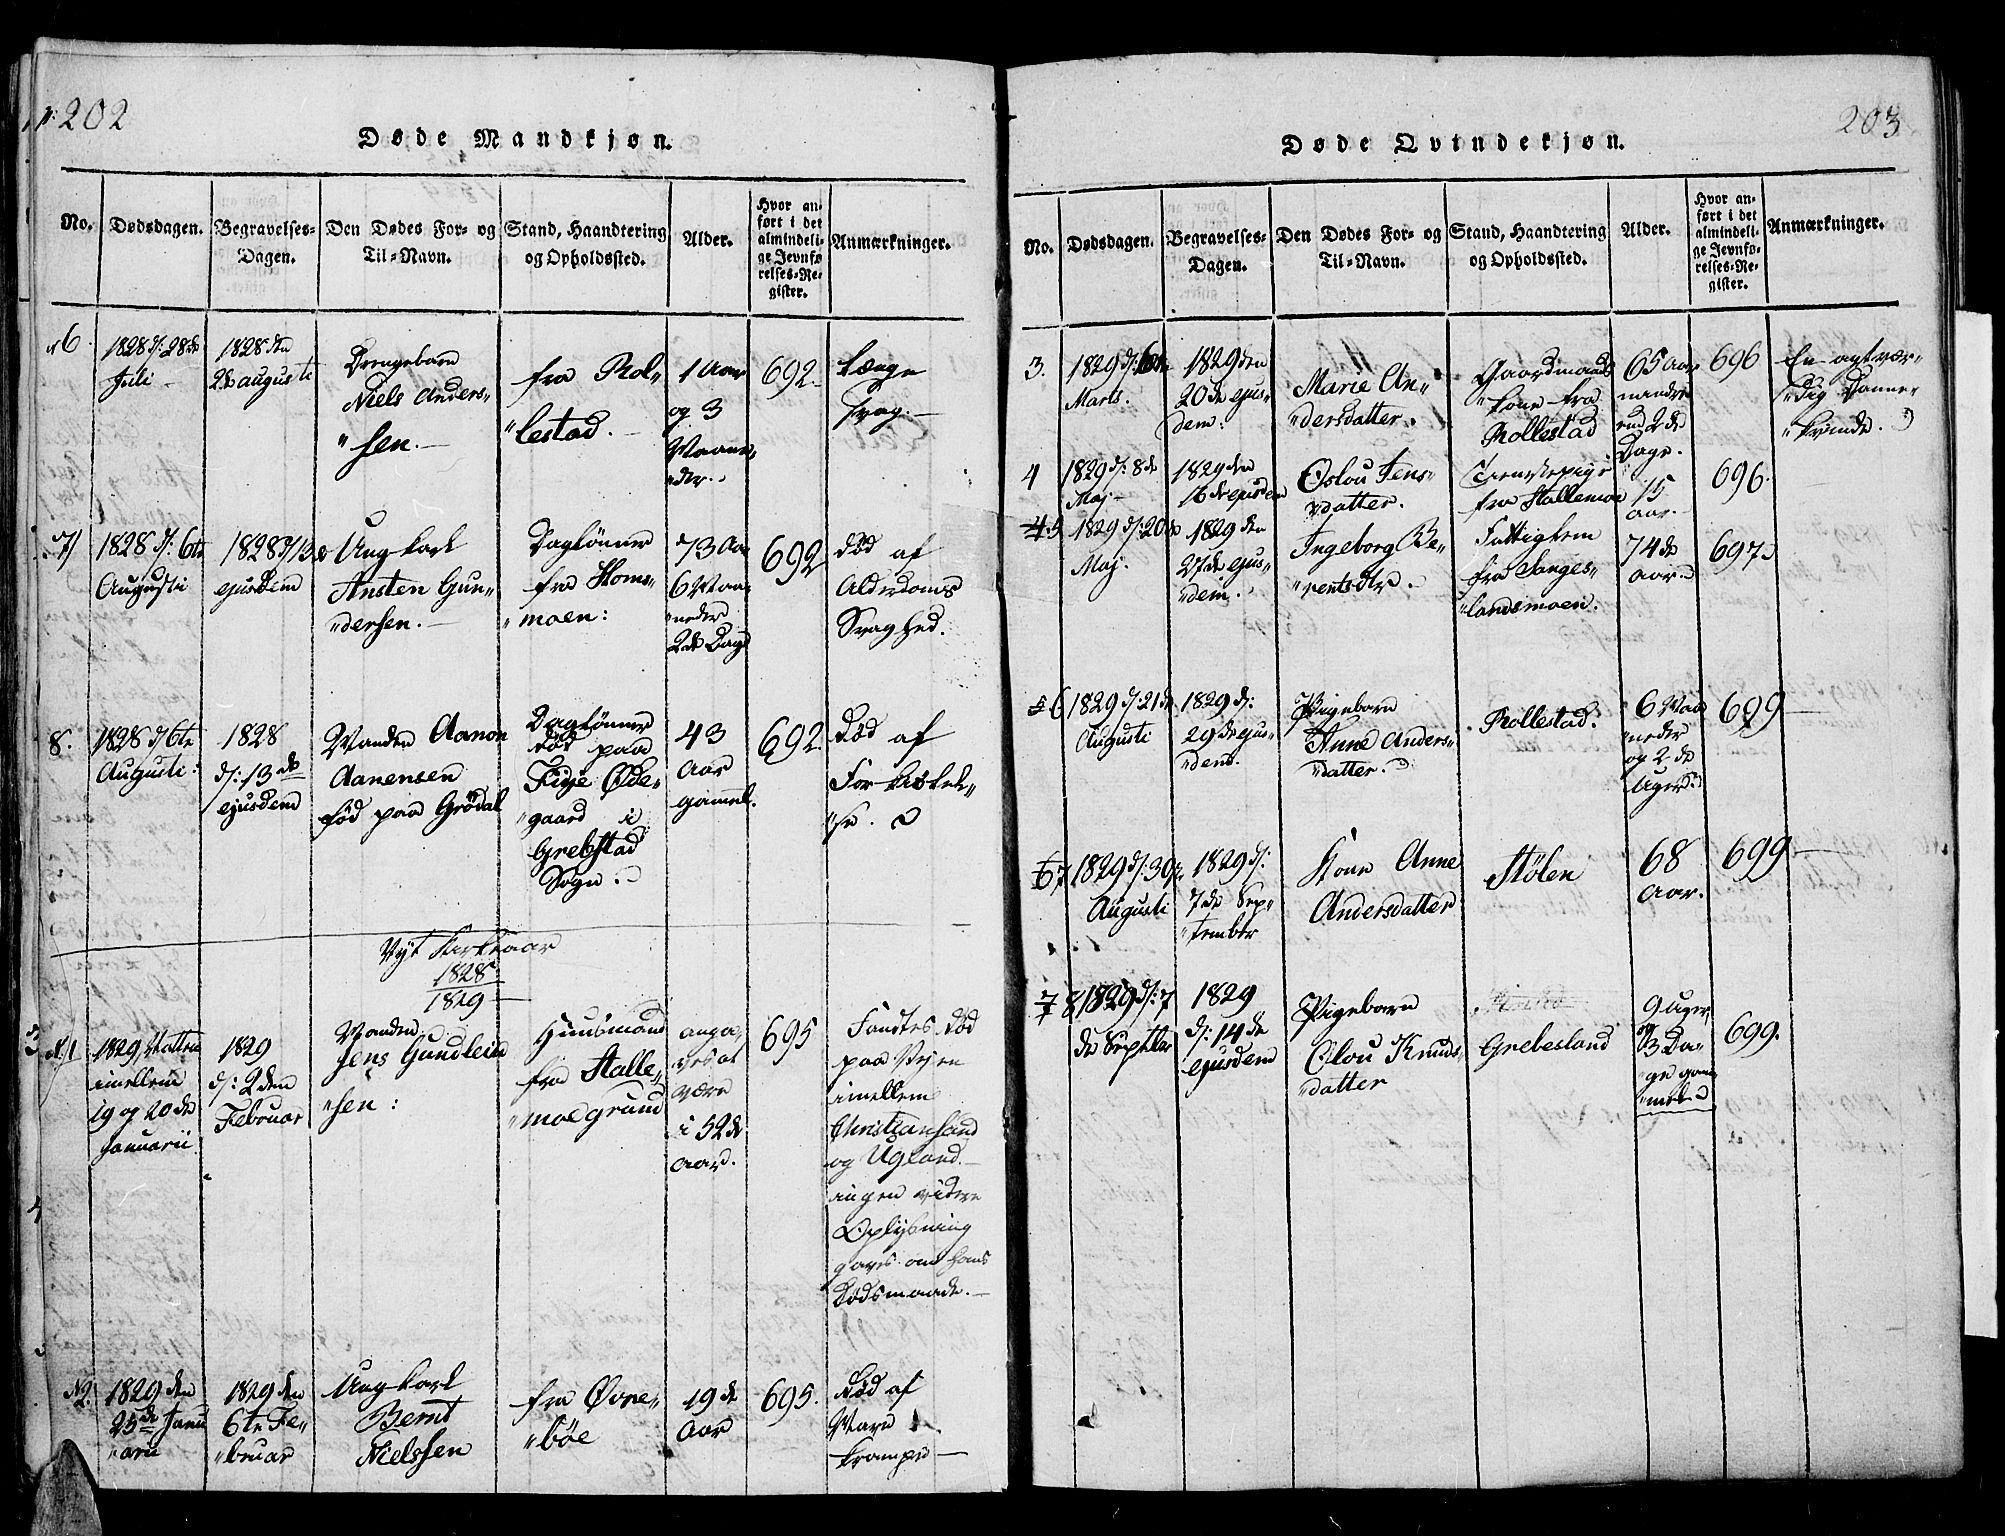 p: 202
Døde Mandkjøn.
No.
Dødsdagen.
Begravelses-
Dagen.
Den Dødes For- og
Til-Navn.
Stand, Haandtering
og Opholdssted.
Alder.
Hvor an-
ført i det
almindeli-
ge Jevnfø-
relses-Re-
gister.
Anmærkninger.
6.
1828 d: 28de
Juli
1828 den
2de augusti
Drengebarn
Niels Anders-
"sen.
fra Rol-
"lestad.
1 Aar
og 3
Maane-
"der.
692
Længe
svag.
7
1828 d: 6te
Augusti
1828 d. 13de
ejusdem
Ungkarl
Ansten Gun-
"dersen.
Daglønner
fra Homs-
"moen:
73 Aar
6 Maa-
"neder
2de Dage
692
død af
Alderdoms
Svaghed.
8.
1828 d. 6te
Augusti:
1828
d: 13de
ejusdem
Manden Aanon
Aanensen
fød paa Grødal
Daglønner
død paa
Fige Øde-
"gaard i
Grebstad
Sogn.
43
Aar
gamel.
692
Død af
Forkiølel-
"se.
Nyt Kirkeaar
1828
1829
N. 1
1829, Natten
imellem
19 og 20de
Januarii
1829
d: 2den
Februar
Manden
Jens Gundleid
"sen:
Huusmand
fra Stalle-
"moegrund
anga-
"ves at
være
i 52de
aar.
695
Fandtes død
paa Vejen
imellem
Christiansand
og Ugland.
ingen videre
Oplysning
gaves om hans
Dødsmaade.
N 2.
1829 den
25de Janu
"arii
1829 den
6te Fe-
"bruar
Ungkarl
Bernt
Nielssen
fra Øvre-
"bøe
19de
Aar
695.
Død af
krampe
203
Døde Qvindekjøn.
No.
Dødsdagen.
Begravelses-
Dagen.
Den Dødes For- og
Til-Navn.
Stand, Haandtering
og Opholdssted.
Alder.
Hvor an-
ført i det
almindeli-
ge Jevnfø-
relses-Re-
gister.
Anmærkninger.
3.
1829 d: 6te
Marts.
1829 den
20de ejus-
dem:
Marie An-
"dersdatter.
Gaardmands
"kone fra
Rollestad
65 Aar
2de
Dage.
696
En agtvær-
"dig Danne-
"kvinde.
4
1829 d: 8de
Maj
1829 den
16de ejusdem
Oslou Jens-
"datter.
Tienestepige
fra Stallemoe
15
aar.
696.
5
1829 d: 20de
Maj.
1829 den
27de ejus-
"dem.
Ingeborg Be-
"rentsdtr.
Fattiglem
fra Sanges-
"landsmoen.
74de
Aar.
697
6
1829 d: 21de
Augusti
1829 d:
29de ejus-
"dem.
Pigebarn
Anne Anders-
"datter.
Rollestad.
6 Maa
"neder
og 2de
Uger.
699
7
1829 d: 30te
Augusti
1829 d:
7de Sep-
"tember
Kone Anne
Andersdatter
Stølen
68
Aar.
699
8
1829 d: 7
de Septbr
1829
d: 14de
ejusdem
Pigebarn
Olou Knuds-
"datter
Grebesland
9 Uger
og
3 Da-
"ge gam
"mel.
699.